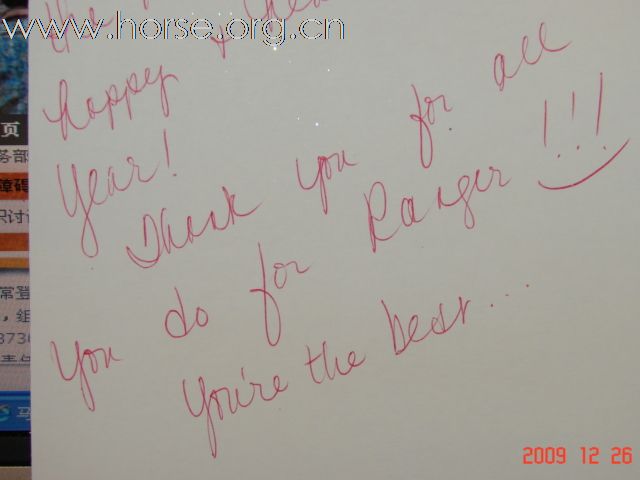 the
www.horse.org.cn
happy
Year!
Thank you for all
you do for Ranger!!!
You're the best...
页
务部
障碍
识讨
常登
，组
873
责任
马
2009 12 26